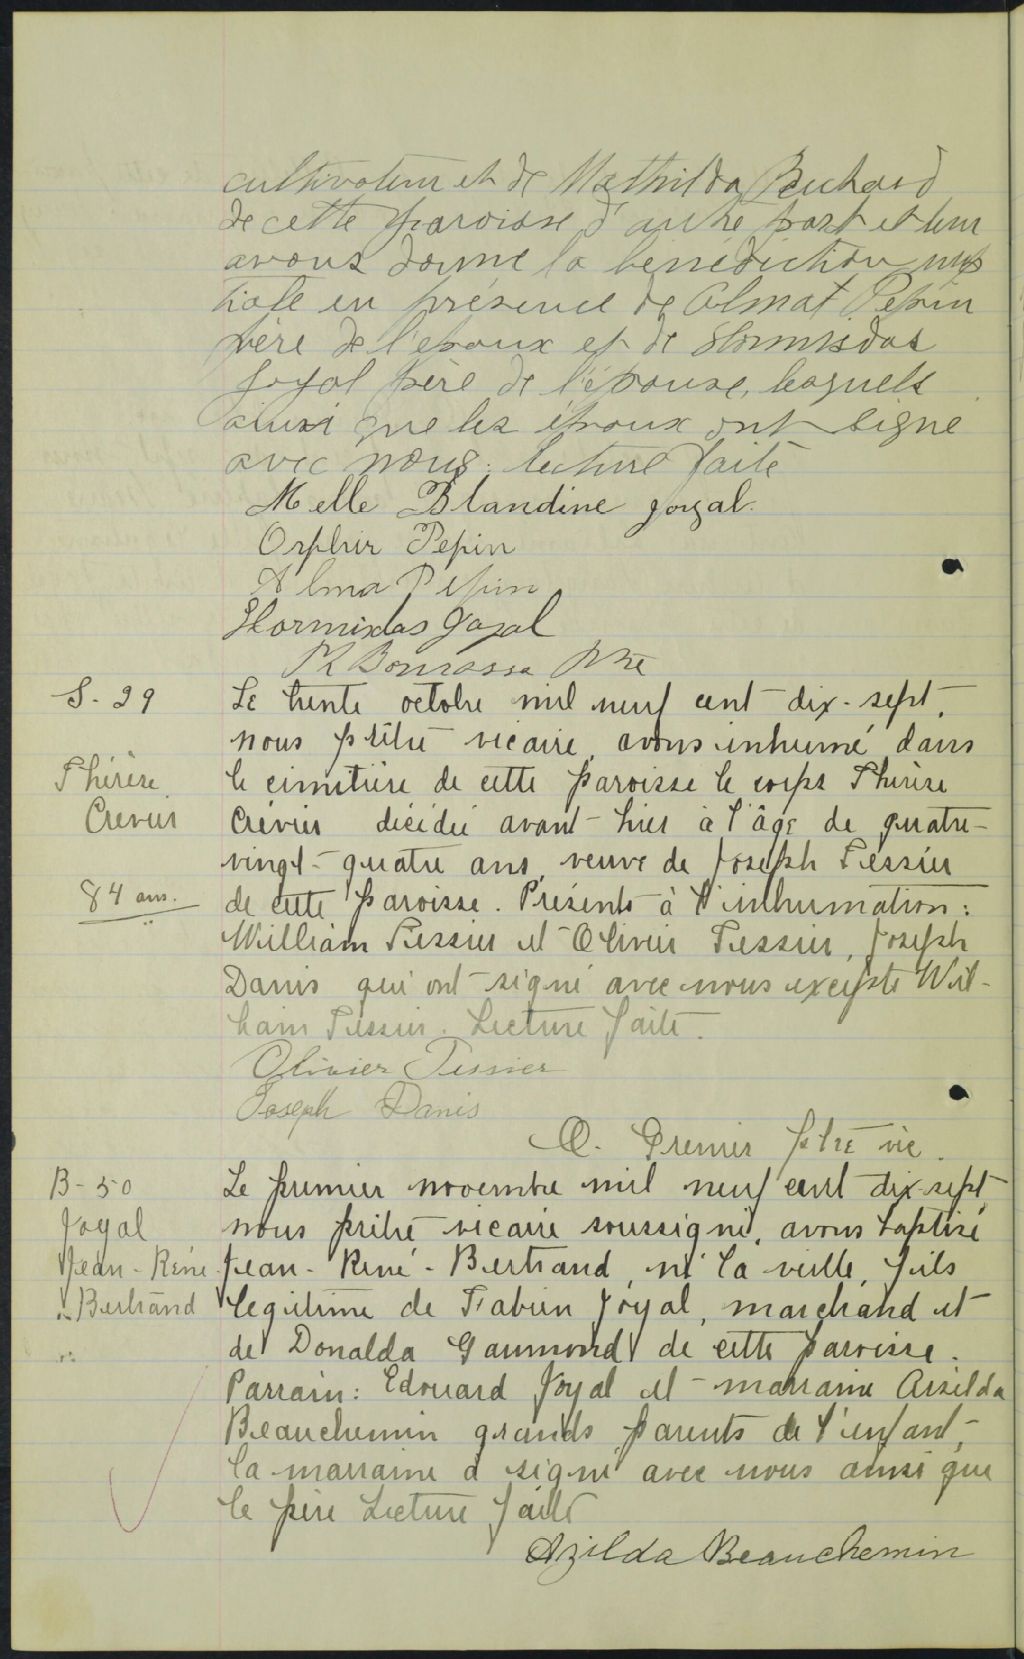 cultivateur et de Mathilda Bruchard
de cette paroisse d'autre part et leur
avons donné la bénédiction nup
tiale en présence de Almat Pepin
père de l'époux et de Hormisdas
Joyal père de l'épouse, lesquels
ainsi que les époux ont signé
avec nous. lecture faite
Melle Blandine Joyal.
Orphir Pepin
Alma Pepin
Hormisdas Joyal
Bourassa Ptre
S. 29
Thérèse
Crevier
84 ans.
Le trente octobre mil neuf cent dix-sept,
nous prêtre vicaire, avons inhumé dans
le cimetière de cette paroisse le corps Thérèse
Crévier décédée avant-hier à l'âge de quatre-
vingt-quatre ans, veuve de Joseph Tessier
de cette paroisse. Présents à l'inhumation:
William Tessier et Olivier Tessier, Joseph
Danis qui ont signé avec nous excepté Wil-
liam Tessier. Lecture faite.
Olivier Tessier
Joseph Danis
O. Premier ptre vic.
B-50
Joyal
Jean-René
Bertrand
Le premier novembre mil neuf cent dix-sept
nous prêtre vicaire soussigné, avons baptisé
Jean-René-Bertrand, né la veille, fils
légitime de Fabien Joyal, marchand et
de Donalda Gaumond de cette paroisse.
Parrain: Edouard Joyal et marraine Arzilda
Beauchemin grands parents de l'enfant,
la marraine a signé avec nous ainsi que
le père Lecture faite
Azilda Beauchemin